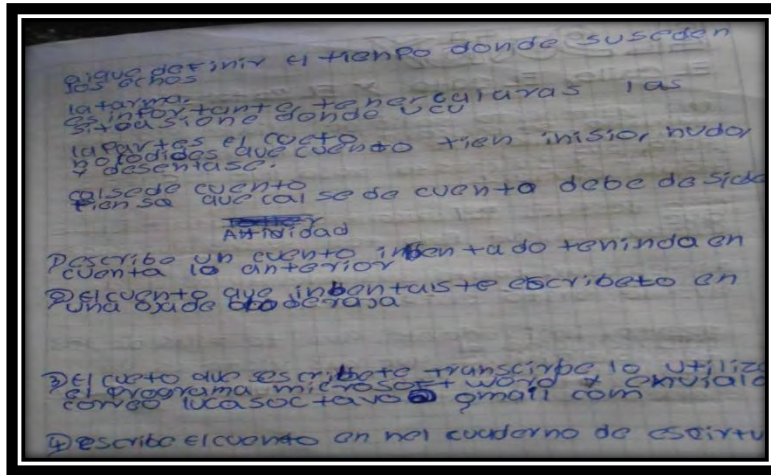 aique definir el tienpo donde suseden
los echos
la tarma.
es infortante tener calaras las
sitousione donde ucu
la partes el cueto
no lodides que cuento tien inisior nudor
y desentase.
calsede cuento
tien sa que cal se de cuento debe de side
Antididad
Describe un cuento inben tado teninda en
cuenta lo anterior
2) El cuento que inbentaiste escribeto en
una oja de
3) El cueto que sescribete transcirbe lo utiliza
el programa microsoft word y envialo
correo lucasoctavo@ gmail com
4) Describe el cuento en nel cuaderno de esoirtu